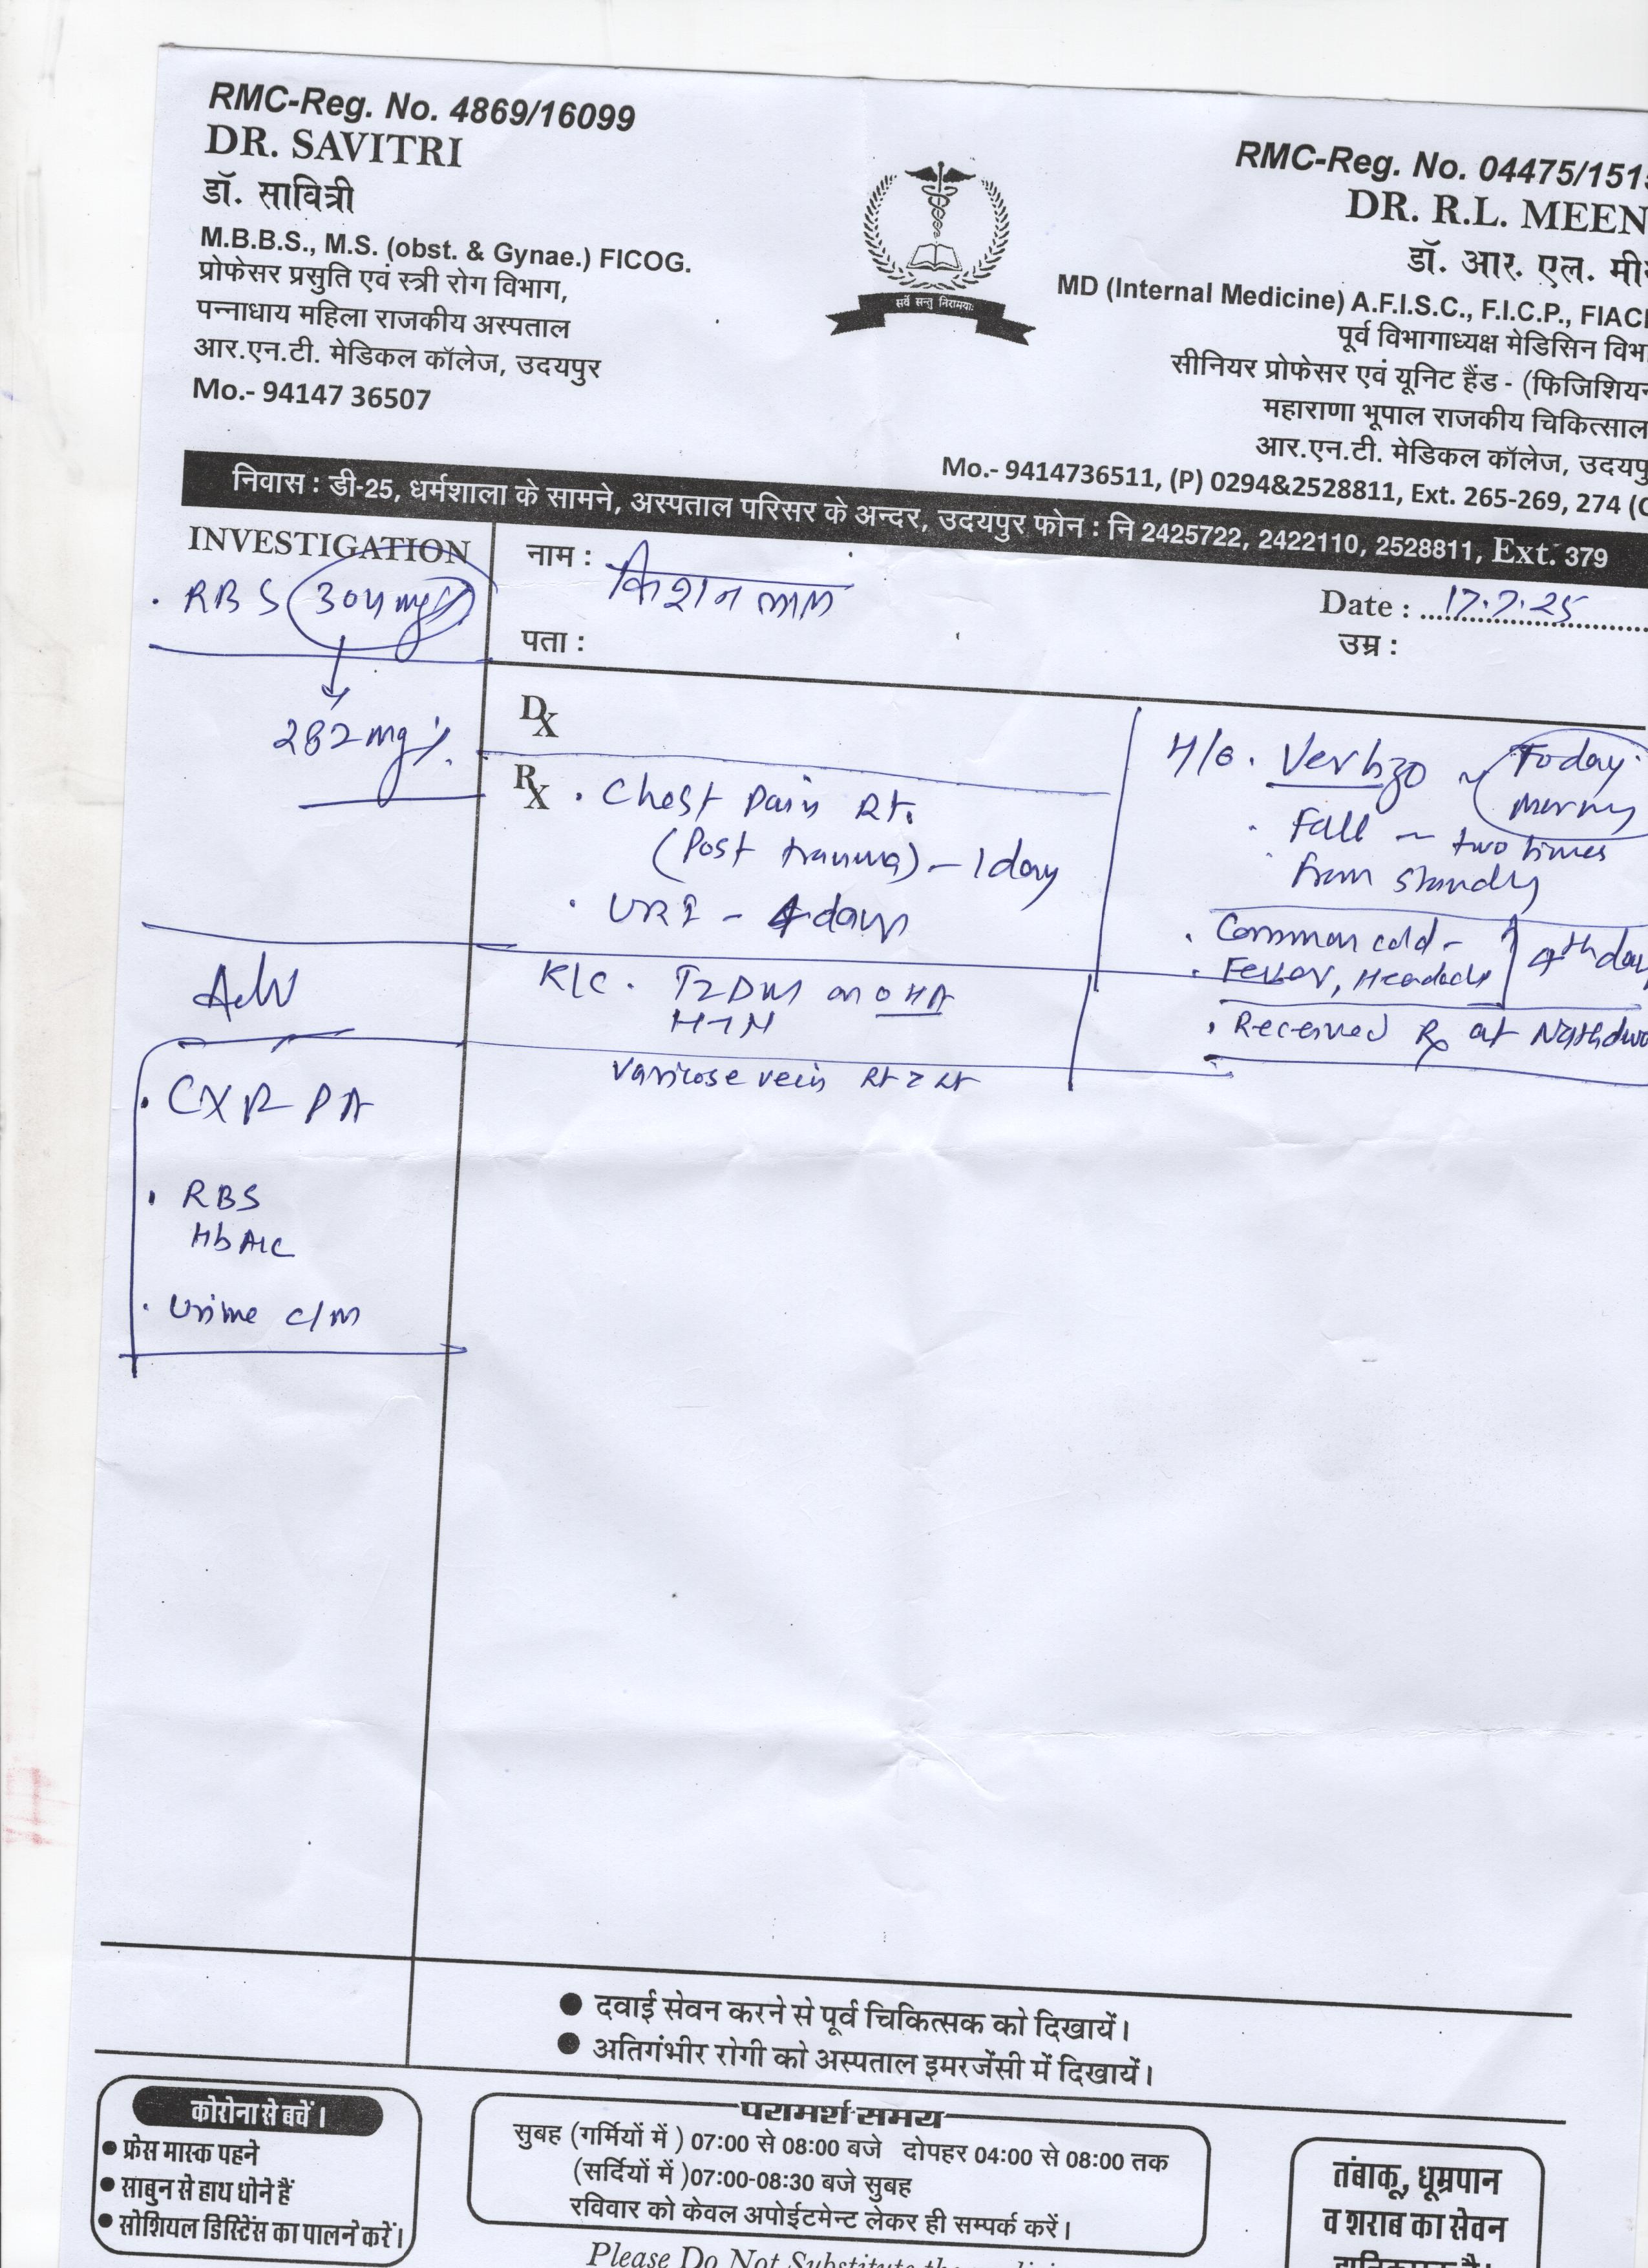 RMC-Reg. No. 4869/16099
DR. SAVITRI
डॉ. सावित्री
M.B.B.S., M.S. (obst. & Gynae.) FICOG.
प्रोफेसर प्रसुति एवं स्त्री रोग विभाग,
पन्नाधाय महिला राजकीय अस्पताल
आर.एन.टी. मेडिकल कॉलेज, उदयपुर
Mo.- 94147 36507
सर्वे सन्तु निरामयाः
RMC-Reg. No. 04475/151
DR. R.L. MEEN
डॉ. आर. एल. मी
MD (Internal Medicine) A.F.I.S.C., F.I.C.P., FIAC
पूर्व विभागाध्यक्ष मेडिसिन विभा
सीनियर प्रोफेसर एवं यूनिट हैंड - (फिजिशियन
महाराणा भूपाल राजकीय चिकित्साल
आर.एन.टी. मेडिकल कॉलेज, उदयपु
Mo.- 9414736511, (P) 0294&2528811, Ext. 265-269, 274 (
निवास : डी-25, धर्मशाला के सामने, अस्पताल परिसर के अन्दर, उदयपुर फोन : नि 2425722, 2422110, 2528811, Ext. 379
INVESTIGATION
. RBS 304 mg%
282 mg%
Adv
. CXR PA
. RBS
HbA1c
. Urine c/m
नाम : किशन लाल
Date : 17.7.25
पता :
उम्र :
Dx
Rx . Chest Pain Rt.
(Post trauma) - 1 day
. URI - 4 days
K/C . T2DM on OHA
HTN
Varicose vein Rt > Lt
H/o . Vertigo ~ Today
. Fall ~ two times
from standing
. Common cold -
. Fever, Headache
4th day
. Received Rx at Nathdwa
● दवाई सेवन करने से पूर्व चिकित्सक को दिखायें।
● अतिगंभीर रोगी को अस्पताल इमरजेंसी में दिखायें।
कोरोना से बचें।
● फ्रेस मास्क पहने
● साबुन से हाथ धोने हैं
● सोशियल डिस्टिेंस का पालन करें।
परामर्श समय
सुबह (गर्मियों में ) 07:00 से 08:00 बजे दोपहर 04:00 से 08:00 तक
(सर्दियों में )07:00-08:30 बजे सुबह
रविवार को केवल अपोईटमेन्ट लेकर ही सम्पर्क करें।
तंबाकू, धूम्रपान
व शराब का सेवन
Please Do Not Substitute the